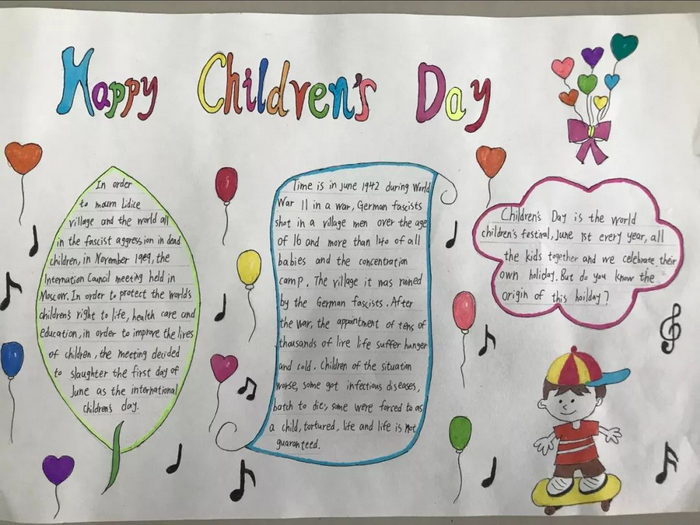 Happy Children's Day
In order
to mourn Lidice
village and the world all
in the fascist aggression in dead
children, in November 1949, the
Internation Council meeting held in
Moscow. In order to protect the world's
children's right to life, health care and
education, in order to improve the lives
of children, the meeting decided
to slaughter the first day of
June as the international
children's day.
Time is in june 1942 during World
War II in a war, German fascists
shot in a village men over the age
of 16 and more than 140 of all
babies and the concentration
camp. The village it was ruined
by the German fascists. After
the war, the appointment of tens of
thousands of live life suffer hunger
and cold. Children of the situation
worse, some got infectious diseases,
batch to die, some were forced to as
a child, tortured, life and life is not
guaranteed.
Children's Day is the world
children's festival, June 1st every year, all
the kids together and we celebrate their
own holiday. But do you know the
origin of this hoilday?